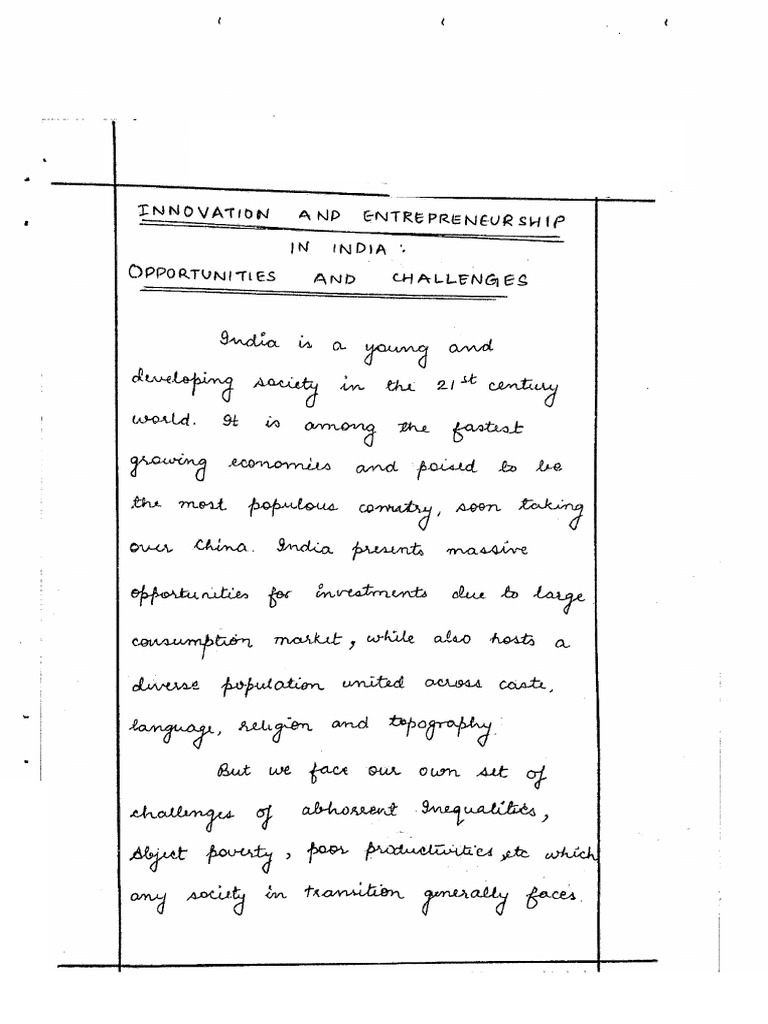 INNOVATION AND ENTREPRENEURSHIP
IN INDIA :
OPPORTUNITIES AND CHALLENGES
India is a young and
developing society in the 21st century
world. It is among the fastest
growing economies and poised to be
the most populous country, soon taking
over China. India presents massive
opportunities for investments due to large
consumption market, while also hosts a
diverse population united across caste,
language, religion and topography.
But we face our own set of
challenges of abhorrent Inequalities,
Abject poverty, poor productivities, etc which
any society in transition generally faces.